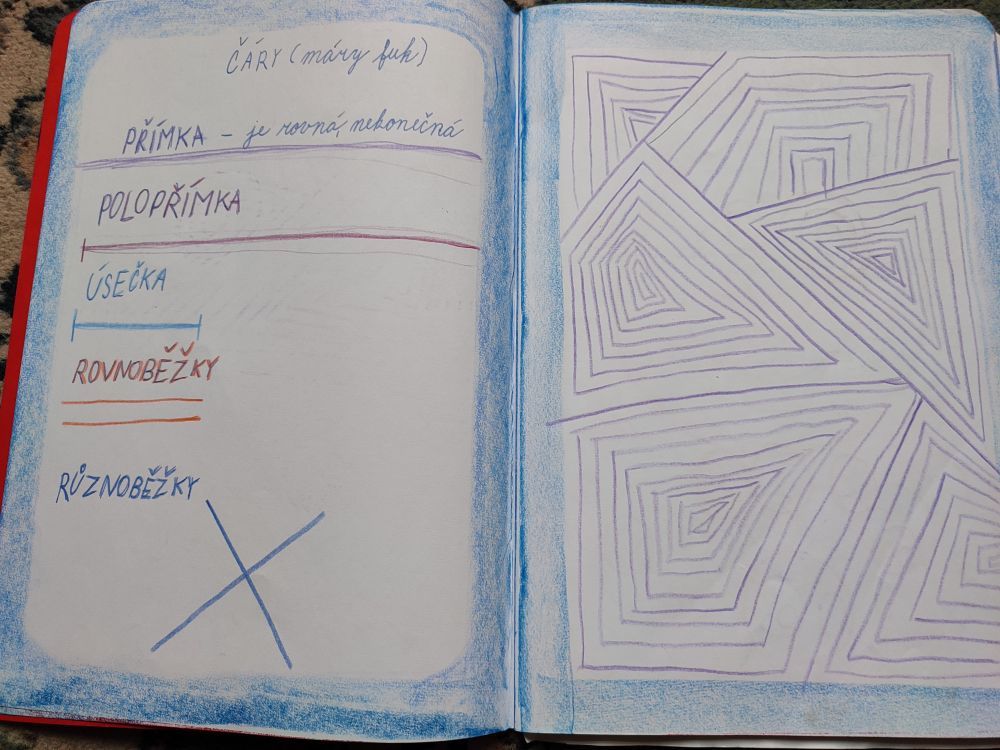 ČÁRY (máry fuk)
PŘÍMKA – je rovná, nekonečná
POLOPŘÍMKA
ÚSEČKA
ROVNOBĚŽKY
RŮZNOBĚŽKY